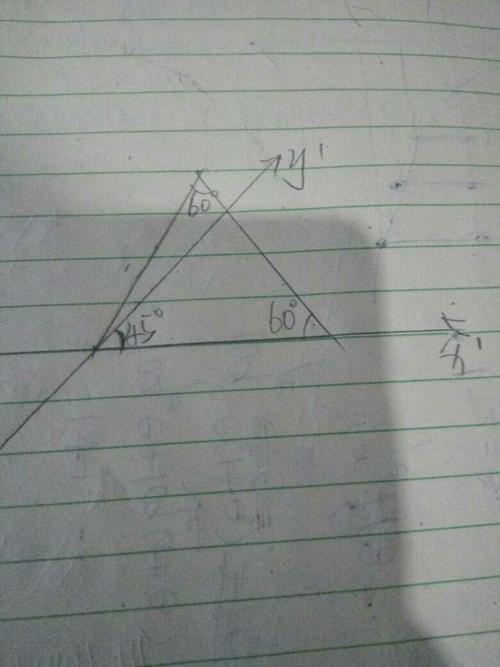 y'
60°
45°
60°
x'